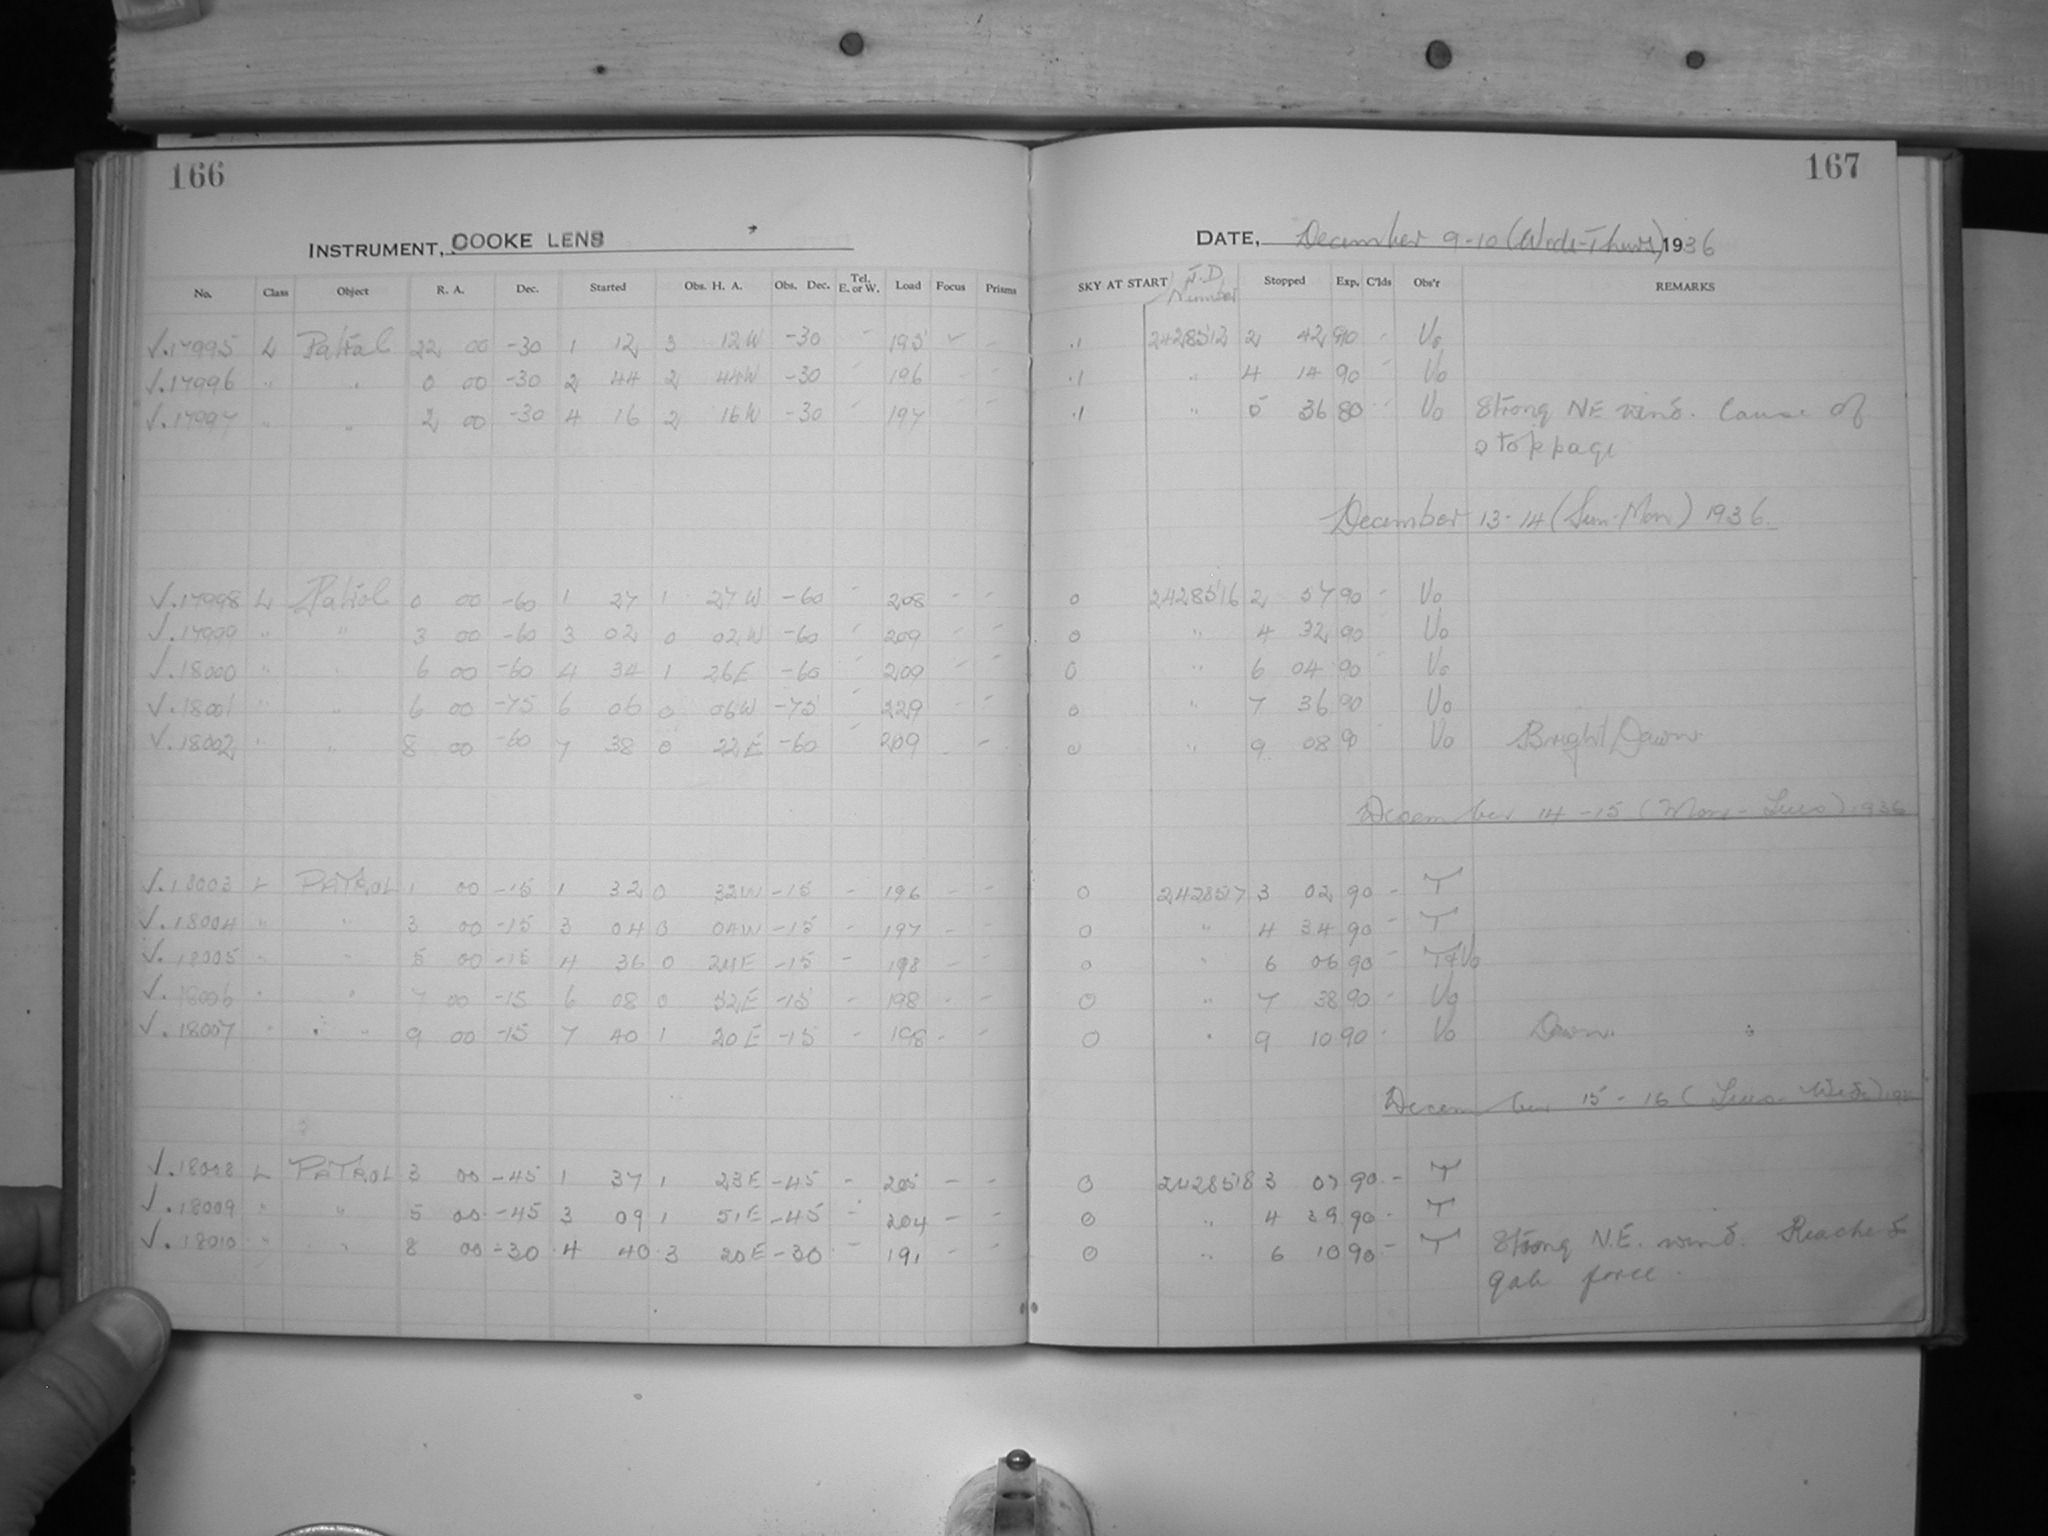 166
INSTRUMENT, COOKE LENS
No. Class Object R. A. Dec. Started Obs. H. A. Obs. Dec. Tel. E. or W. Load Focus Prisms
V.17995 L Patrol 22 00 -30 1 12 3 12W -30 - 195 - -
V.17996 " " 0 00 -30 2 44 2 44W -30 - 196 - -
V.17997 " " 2 00 -30 4 16 2 16W -30 - 197 - -
V.17998 L Patrol 0 00 -60 1 27 1 27W -60 - 208 - -
V.17999 " " 3 00 -60 3 02 0 02W -60 - 209 - -
V.18000 " " 6 00 -60 4 34 1 26E -60 - 209 - -
V.18001 " " 6 00 -75 6 06 0 06W -75 - 229 - -
V.18002 " " 8 00 -60 7 38 0 22E -60 - 209 - -
V.18003 L PATROL 1 00 -15 1 32 0 32W -15 - 196 - -
V.18004 " " 3 00 -15 3 04 0 04W -15 - 197 - -
V.18005 " " 5 00 -15 4 36 0 24E -15 - 198 - -
V.18006 " " 7 00 -15 6 08 0 52E -15 - 198 - -
V.18007 " " 9 00 -15 7 40 1 20E -15 - 198 - -
V.18008 L PATROL 3 00 -45 1 37 1 23E -45 - 205 - -
V.18009 " " 5 00 -45 3 09 1 51E -45 - 204 - -
V.18010 " " 8 00 -30 4 40 3 20E -30 - 191 - -
167
DATE, December 9-10 (Wed-Thurs) 1936
SKY AT START J.D. Number Stopped Exp. C'lds Obs'r REMARKS
.1 2428512 2 42 90 - Vo
.1 " 4 14 90 - Vo
.1 " 5 36 80 - Vo Strong NE wind. Cause of
stoppage
December 13-14 (Sun-Mon) 1936.
0 2428516 2 57 90 - Vo
0 " 4 32 90 Vo
0 " 6 04 90 Vo
0 " 7 36 90 Vo
0 " 9 08 90 Vo Bright Dawn
December 14-15 (Mon-Tues) 1936
0 2428517 3 02 90 - T
0 " 4 34 90 - T
0 " 6 06 90 - T&Vo
0 " 7 38 90 - Vo
0 " 9 10 90 - Vo Dawn
December 15-16 (Tues-Wed)
0 2428518 3 07 90 - T
0 " 4 39 90 - T
0 " 6 10 90 - T Strong N.E. wind. Reached
gale force.